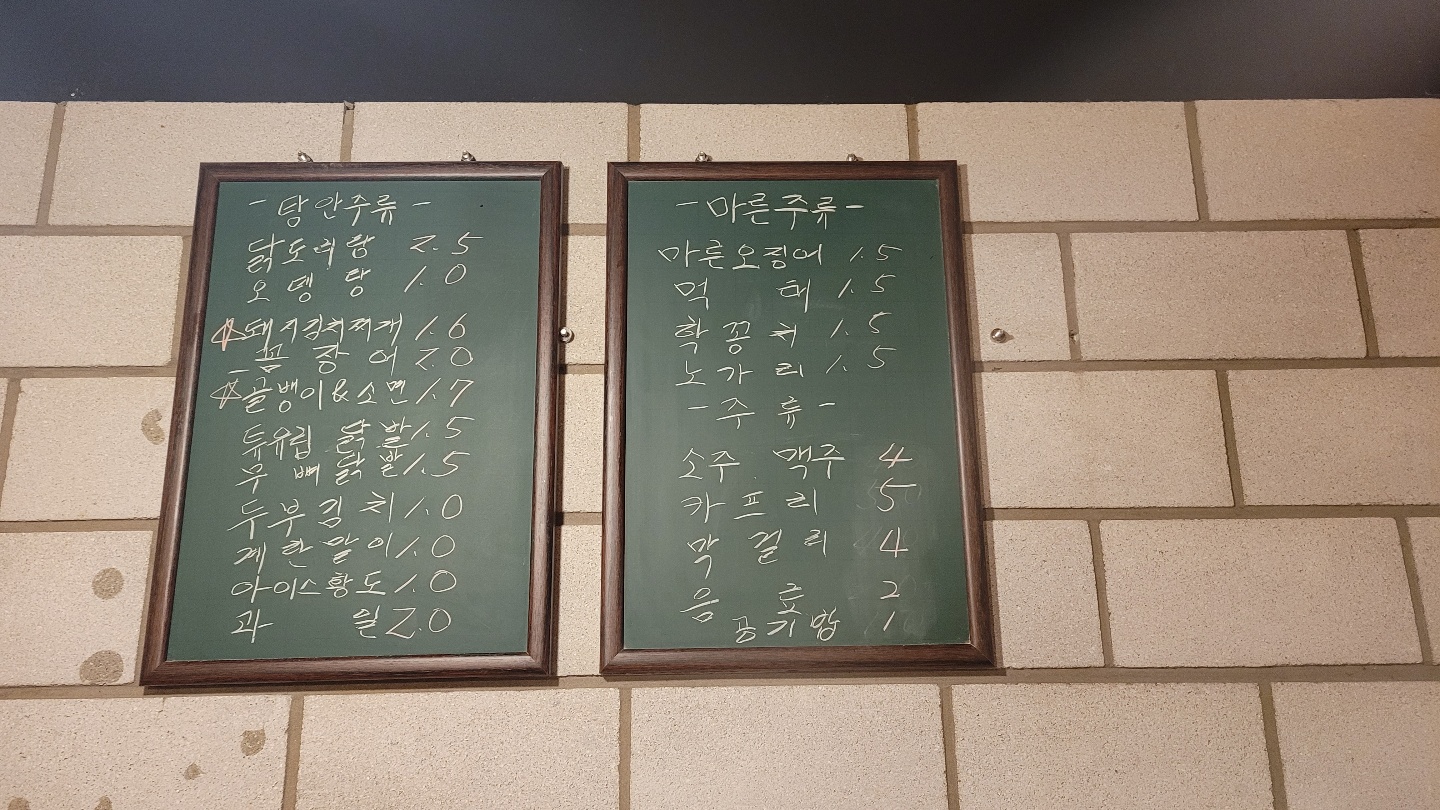 - 탕 안주류 -
닭도리탕 2.5
오뎅탕 1.0
☆돼지김치찌개 1.6
꼼장어 2.0
☆골뱅이&소면 1.7
튜유립 닭발 1.5
무뼈닭발 1.5
두부김치 1.0
계란말이 1.0
아이스황도 1.0
과일 2.0
- 마른주류 -
마른오징어 1.5
먹태 1.5
학꽁치 1.5
노가리 1.5
- 주류 -
소주 맥주 4
카프리 5
막걸리 4
음료 2
공기밥 1